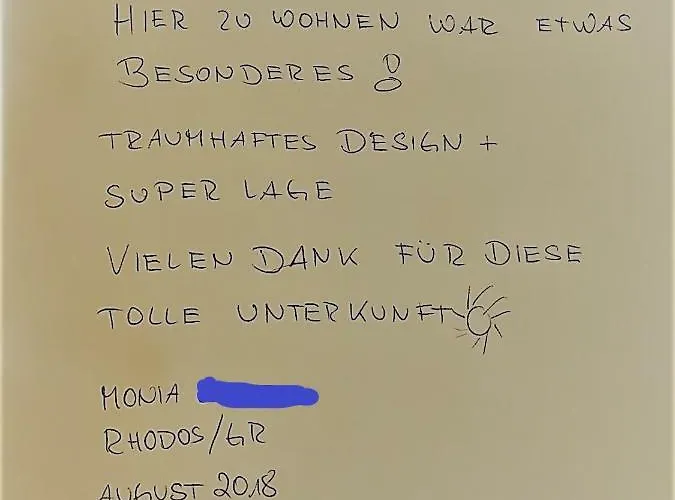 HIER ZU WOHNEN WAR ETWAS
BESONDERES !
TRAUMHAFTES DESIGN +
SUPER LAGE
VIELEN DANK FÜR DIESE
TOLLE UNTERKUNFT
MONIA
RHODOS/GR
AUGUST 2018